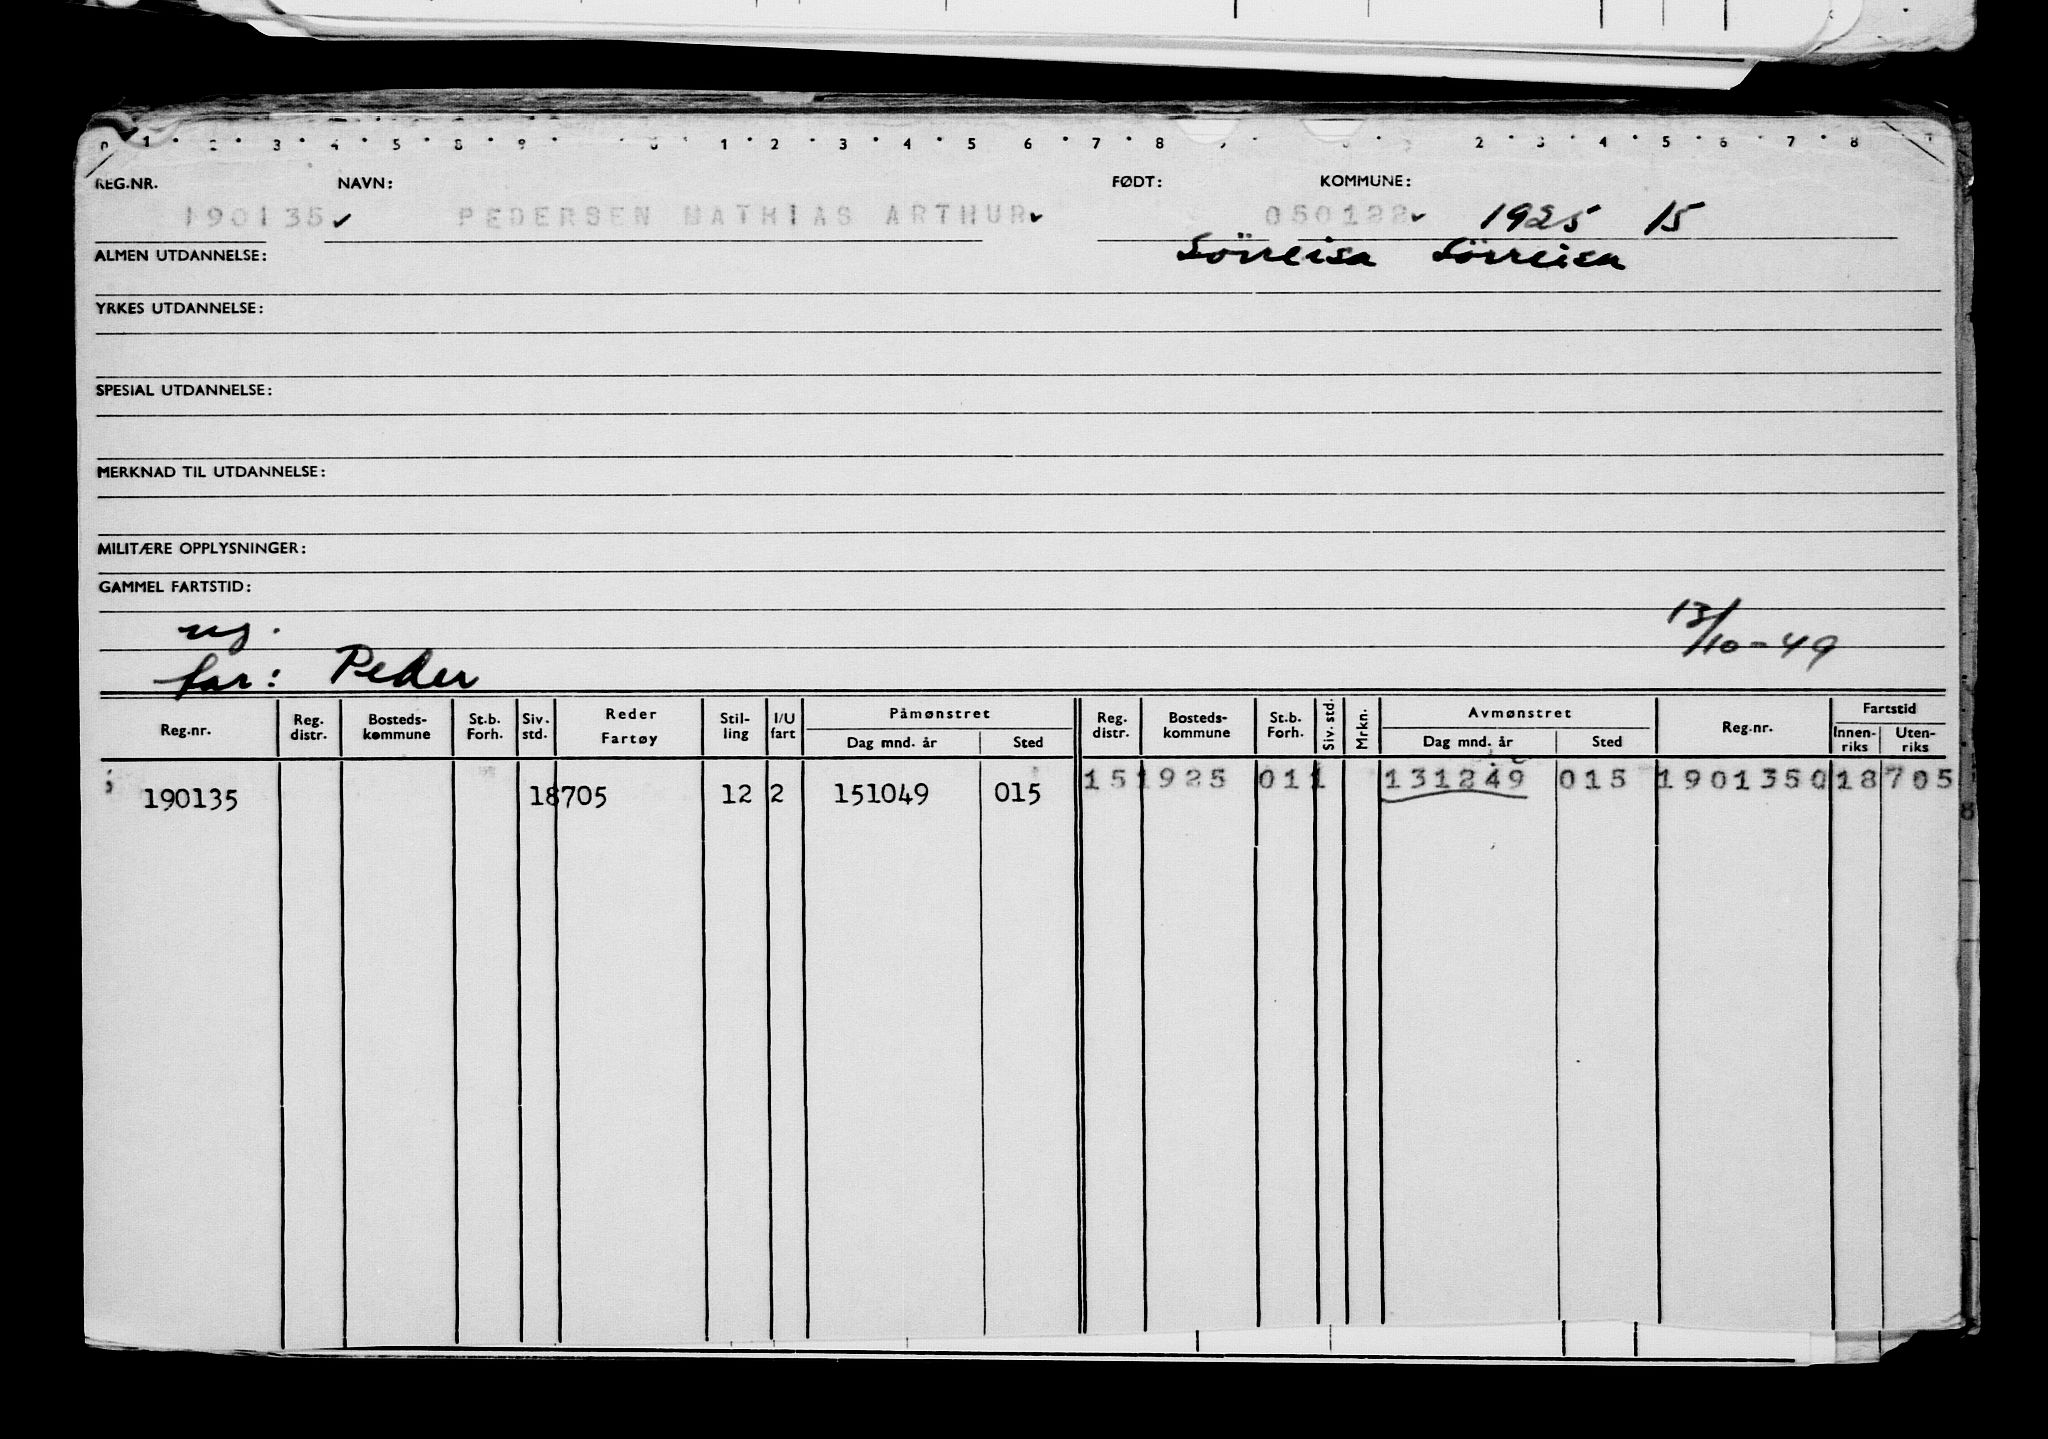 REG.NR. NAVN: FØDT: KOMMUNE:
190135 ✓ PEDERSEN MATHIAS ARTHUR ✓ 050122 ✓ 1925 15
ALMEN UTDANNELSE: Sörreisa Sörreisa
YRKES UTDANNELSE:
SPESIAL UTDANNELSE:
MERKNAD TIL UTDANNELSE:
MILITÆRE OPPLYSNINGER:
GAMMEL FARTSTID:
ug. 13/10-49
far: Peder
Reg.nr. Reg. distr. Bosteds-kommune St.b. Forh. Siv. std. Reder Fartøy Stil-ling I/U fart Påmønstret Dag mnd. år Sted Reg. distr. Bosteds-kommune St.b. Forh. Siv. std. Mrkn. Avmønstret Dag mnd. år Sted Reg.nr. Fartstid Innen-riks Uten-riks
190135 18705 12 2 151049 015 15 1925 011 131249 015 190135 018705